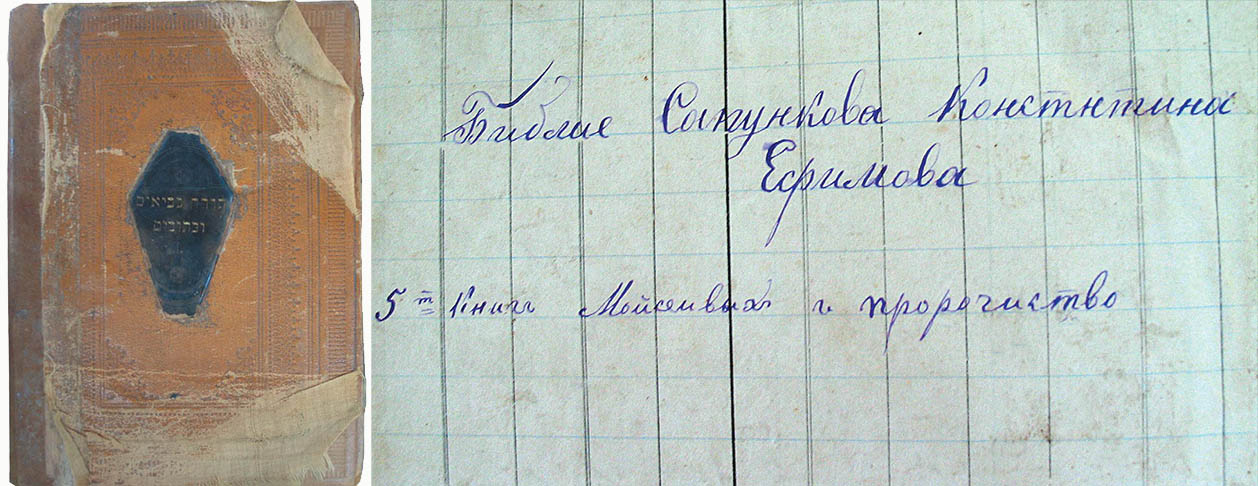 סדר נביאים
וכתובים
Библие Сапункова Констнтина
Ефимова
5ᵗ Книгъ Мойсеивыхъ и пророчиство